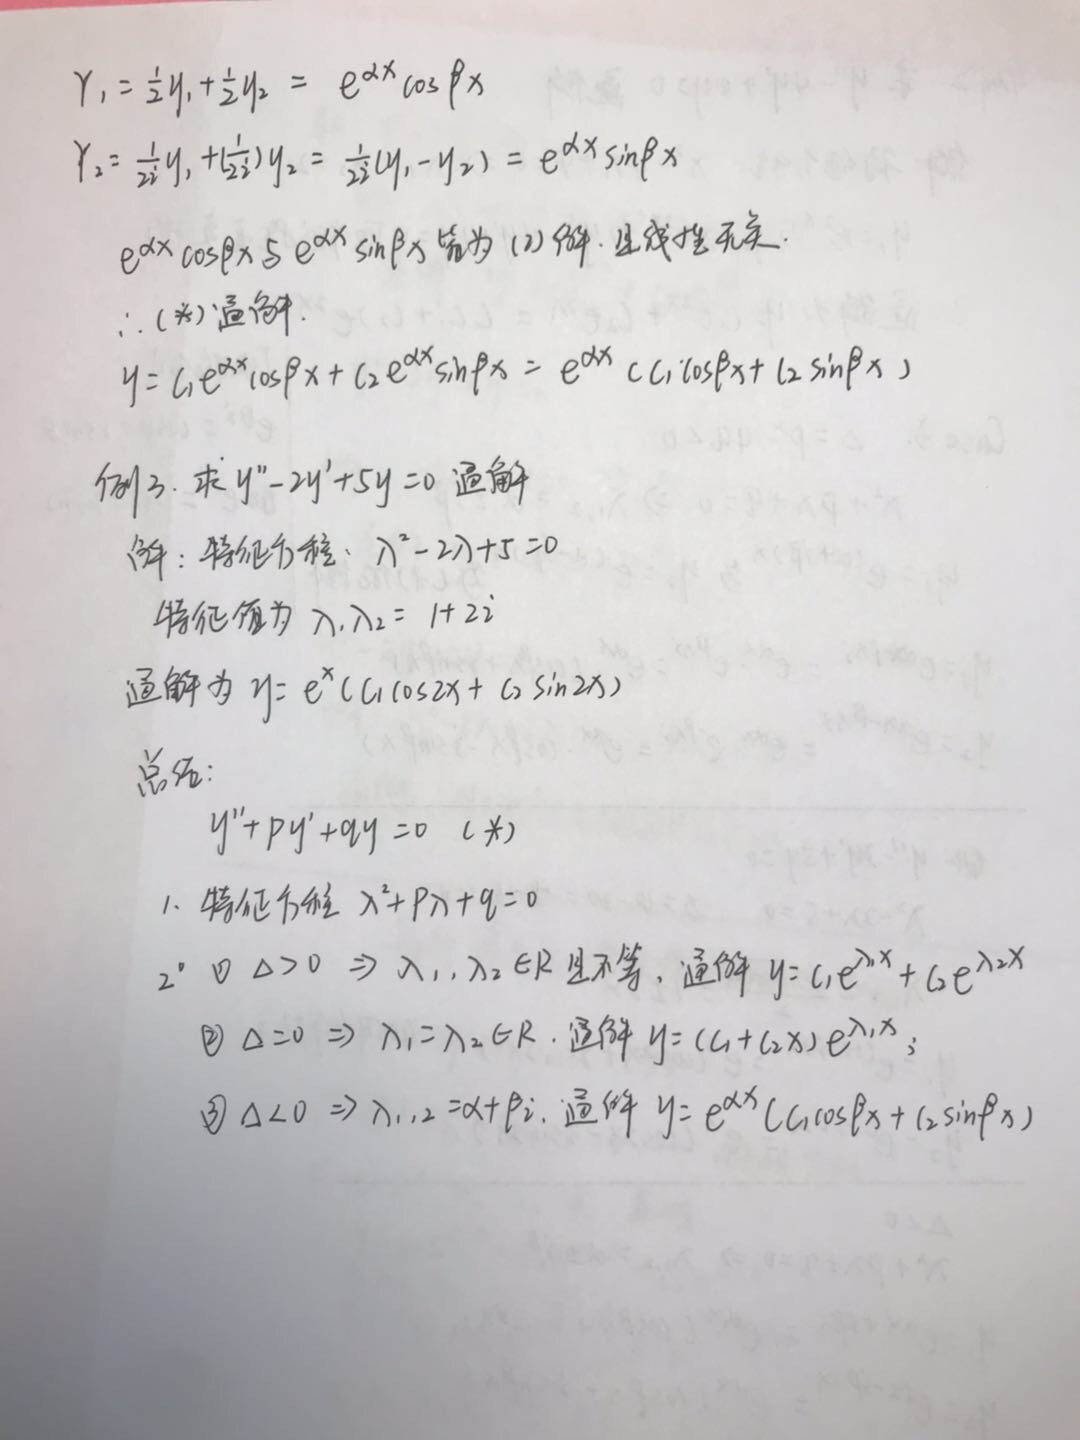 Y₁ = ½y₁ + ½y₂ = e^{αx} cosβx
Y₂ = \frac{1}{2i}y₁ + (\frac{1}{2i})y₂ = \frac{1}{2i}(y₁ - y₂) = e^{αx} sinβx
e^{αx} cosβx 与 e^{αx} sinβx 皆为 (2) 解. 且线性无关.
∴ (*) 通解.
y = C₁e^{αx}cosβx + C₂e^{αx}sinβx = e^{αx} (C₁cosβx + C₂ sinβx)
例3. 求 y'' - 2y' + 5y = 0 通解
解: 特征方程. λ² - 2λ + 5 = 0
特征值为 λ₁,λ₂ = 1+2i
通解为 y = e^x (C₁cos2x + C₂ sin2x)
总结:
y'' + py' + qy = 0 (*)
1. 特征方程 λ² + pλ + q = 0
2° ① Δ>0 ⇒ λ₁, λ₂ ∈R 且不等. 通解 y = C₁e^{λ₁x} + C₂e^{λ₂x}
② Δ=0 ⇒ λ₁=λ₂∈R. 通解 y = (C₁+C₂x) e^{λ₁x};
③ Δ<0 ⇒ λ₁,₂ = α+βi. 通解 y = e^{αx} (C₁cosβx + C₂sinβx)